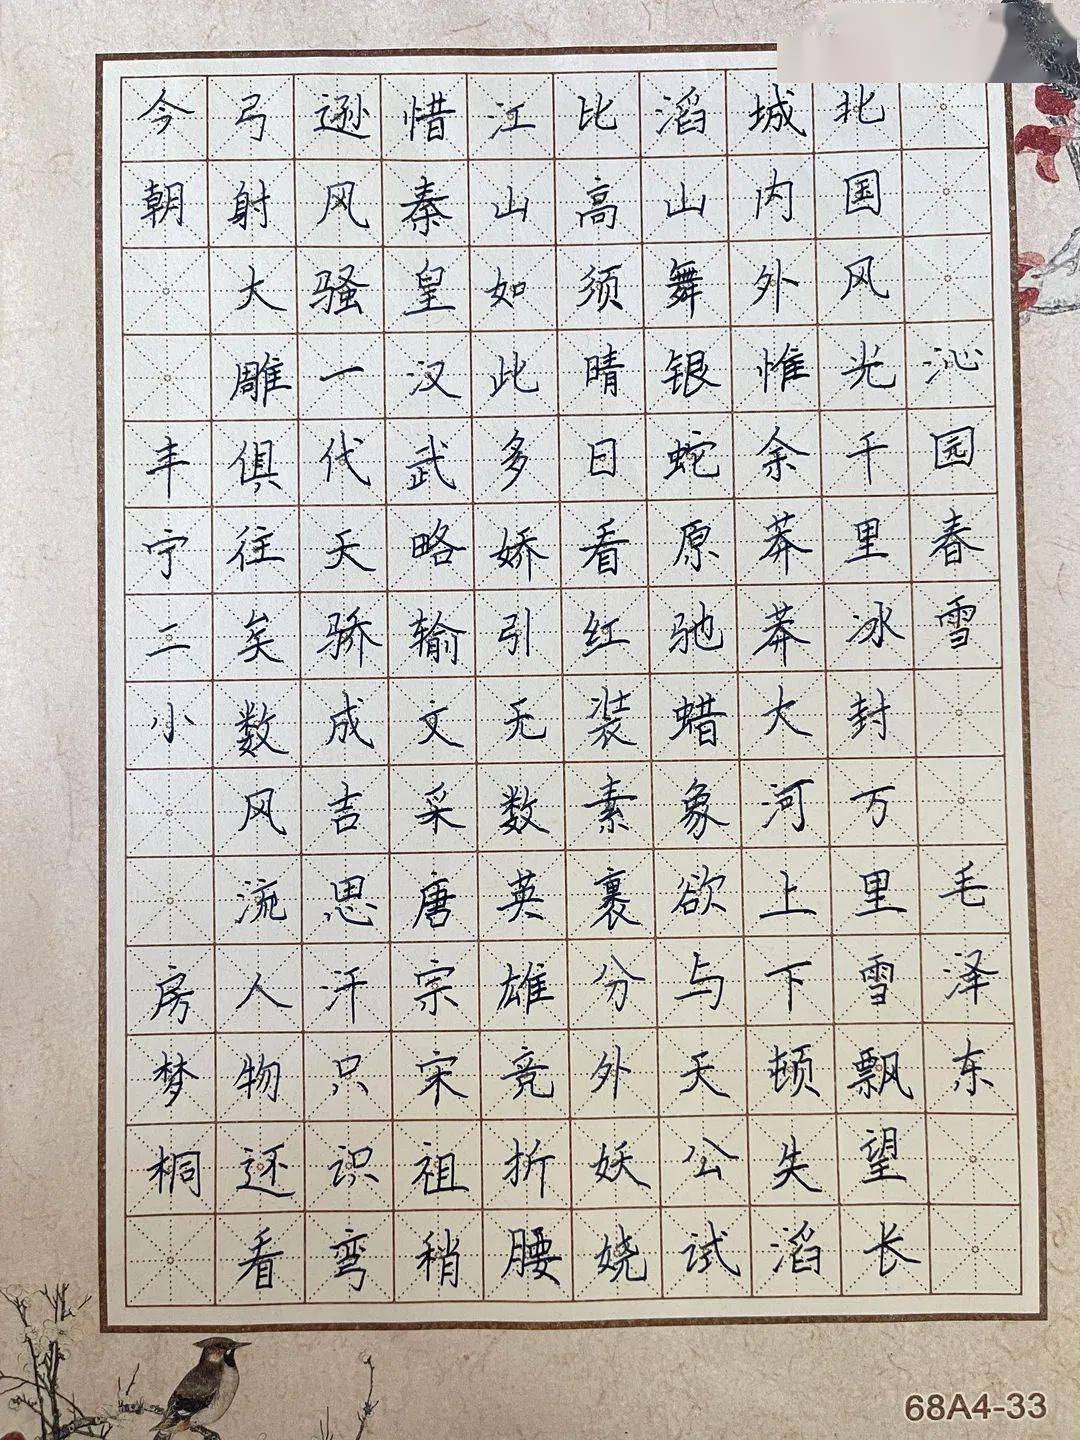 沁园春雪 毛泽东
北国风光千里冰封万里雪飘望长
城内外惟余莽莽大河上下顿失滔
滔山舞银蛇原驰蜡象欲与天公试
比高须晴日看红装素裹分外妖娆
江山如此多娇引无数英雄竞折腰
惜秦皇汉武略输文采唐宗宋祖稍
逊风骚一代天骄成吉思汗只识弯
弓射大雕俱往矣数风流人物还看
今朝 丰宁二小 房梦桐
68A4-33